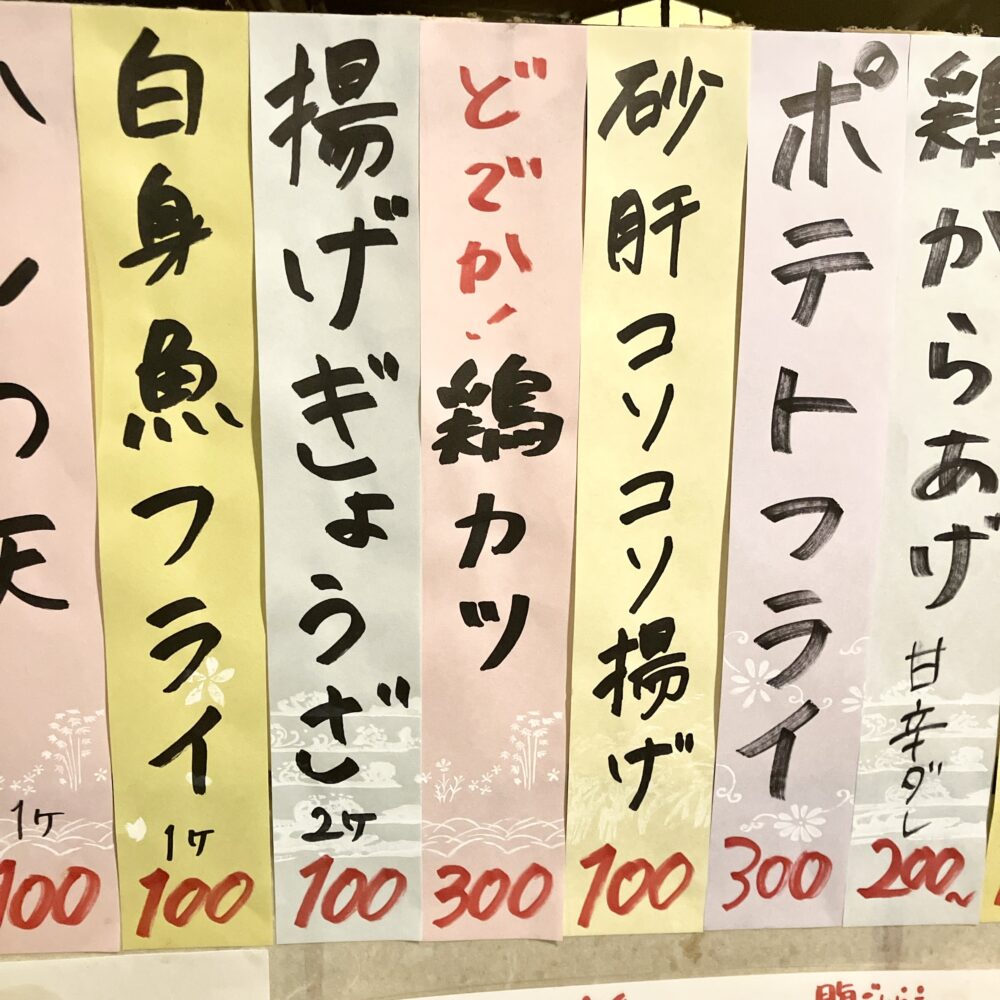 鶏からあげ
甘辛ダレ
200~
ポテトフライ
300
砂肝コソコソ揚げ
100
どでか!鶏カツ
300
揚げぎょうざ
2ケ
100
白身魚フライ
1ケ
100
1ケ
100